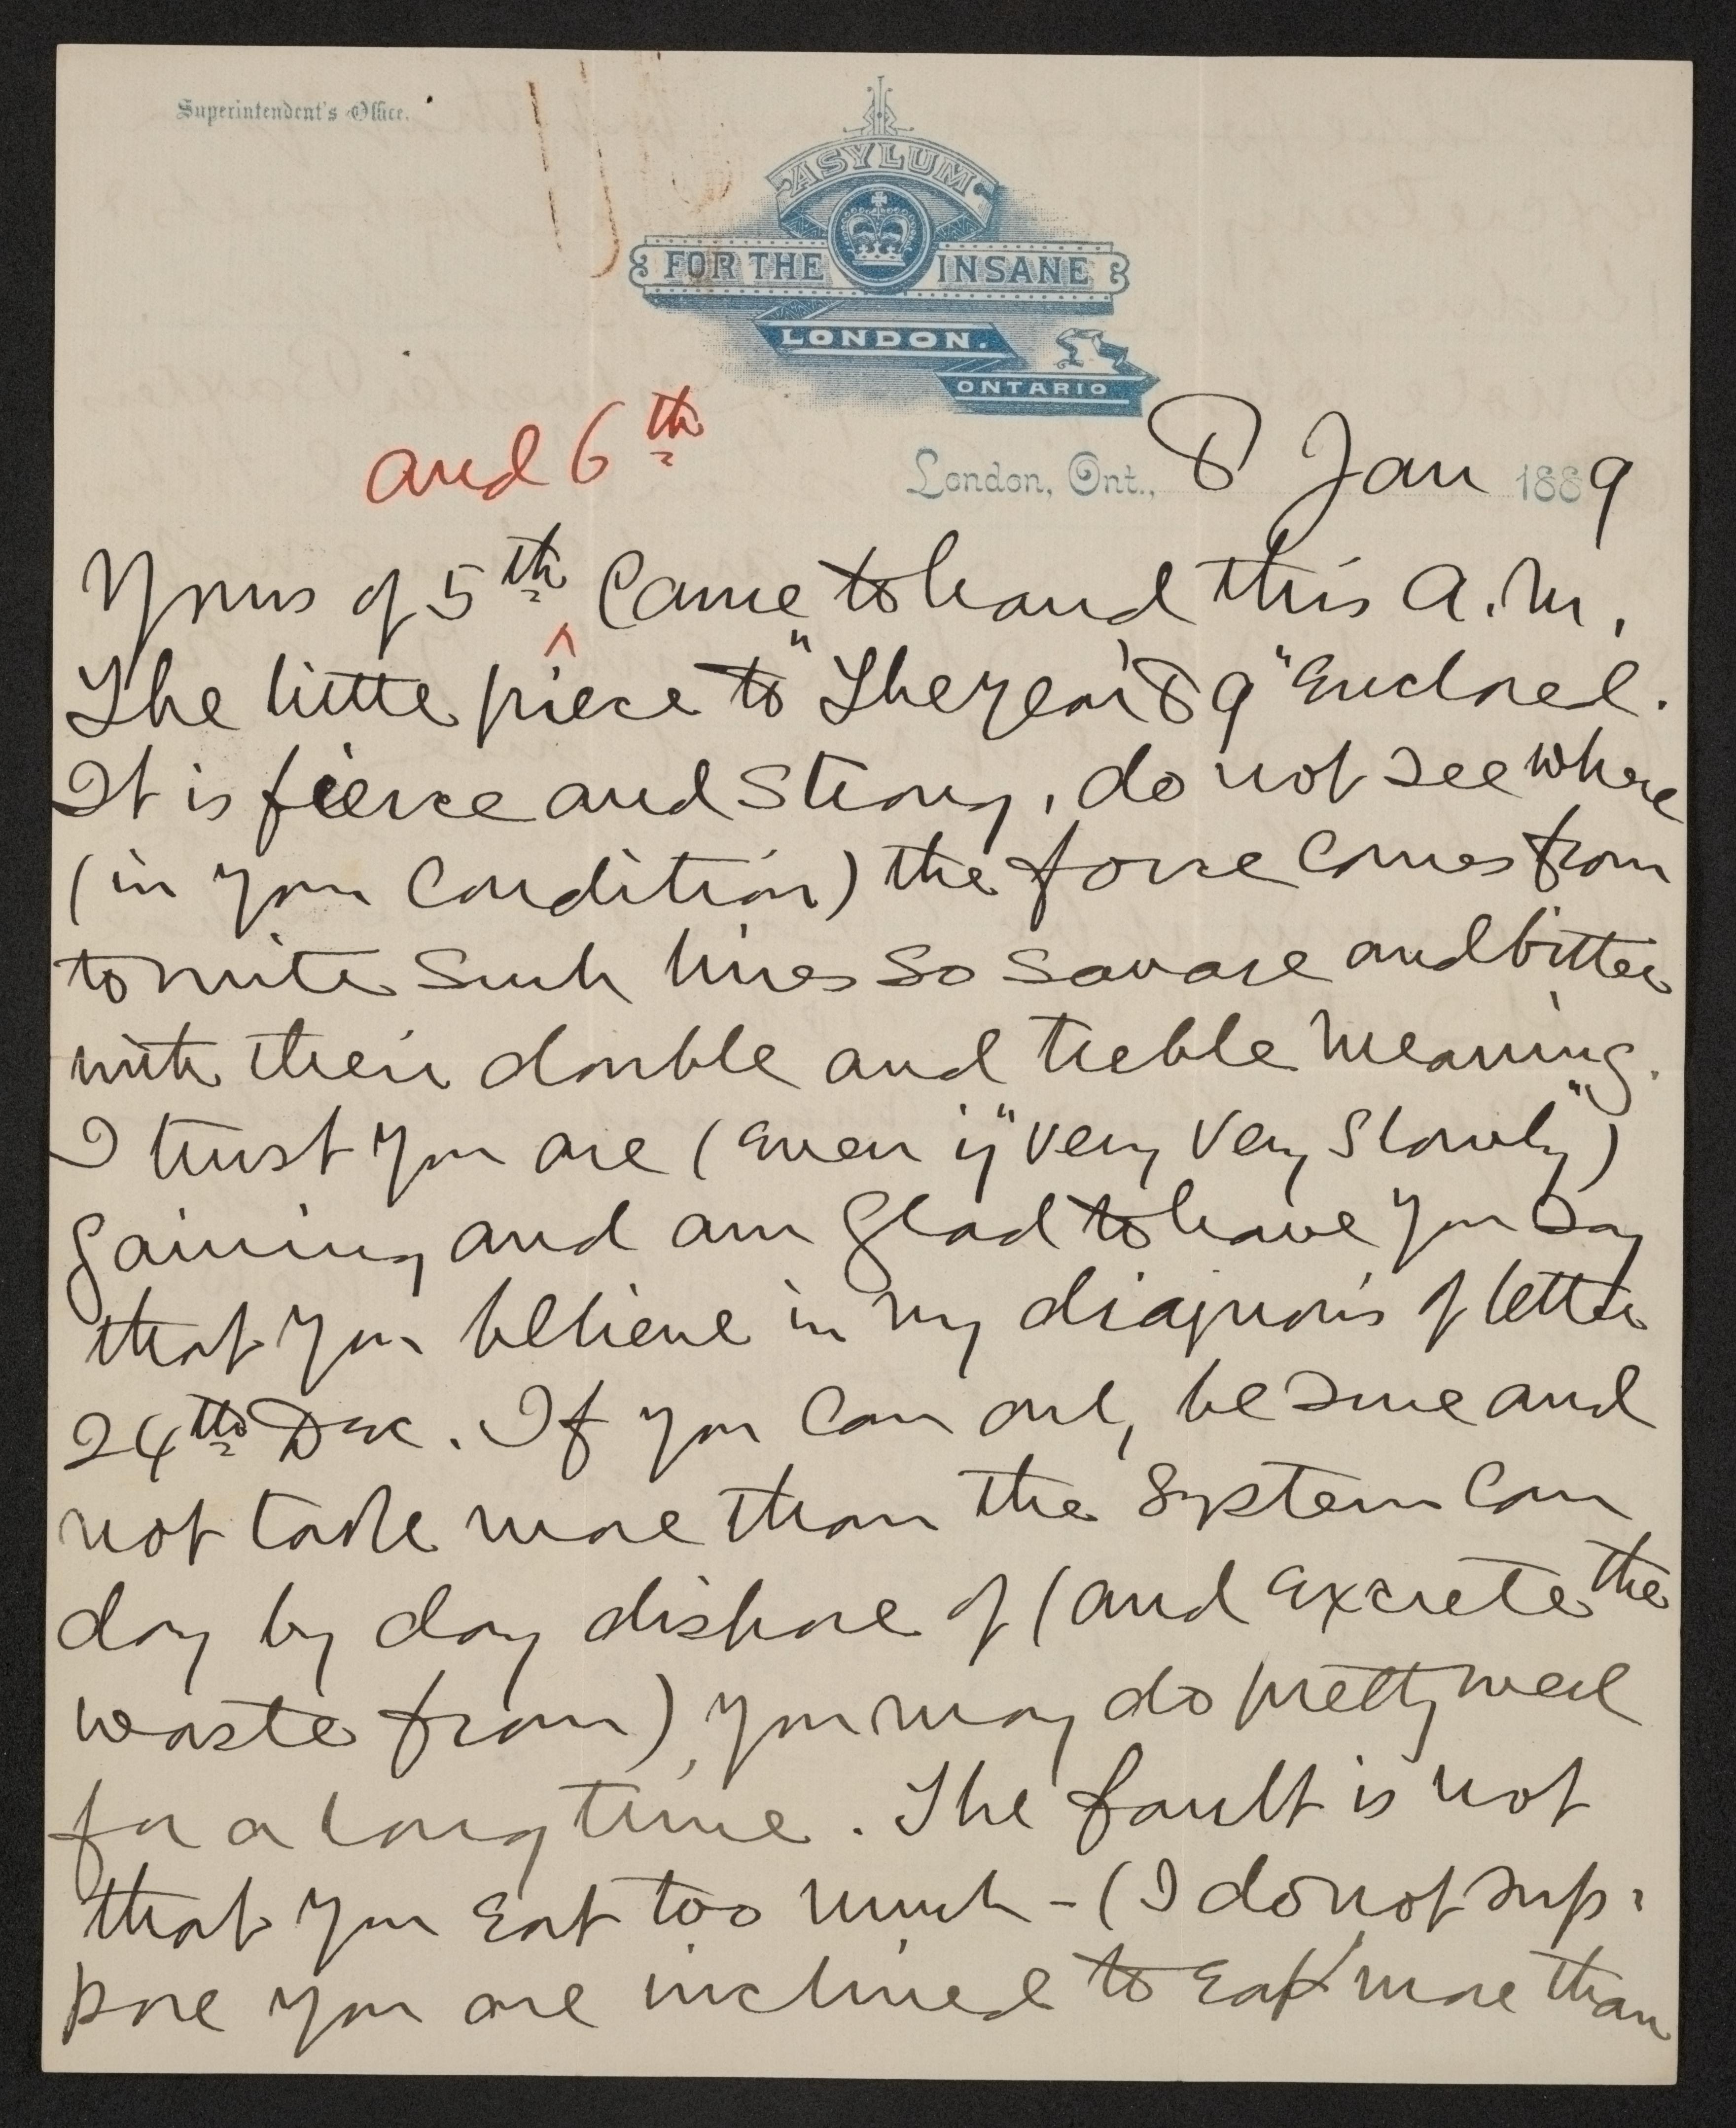 Superintendent's Office.
ASYLUM
FOR THE INSANE
LONDON.
ONTARIO
London, Ont., 8 Jan 1889
and 6th
Yours of 5th ^ came to hand this a.m.
The little piece to "The year '89" enclosed.
It is fierce and strong, do not see where
(in your condition) the force comes from
to write such lines so savage and bitter
with their double and treble meaning.
I trust you are (even if "very very slowly")
gaining and am glad to have you say
that you believe in my diagnosis of letter
24th Dec. If you can only be sure and
not take more than the system can
day by day dispose of (and excrete the
waste from), you may do pretty well
for a long time. The fault is not
that you eat too much - (I do not sup-
pose you are inclined to eat more than